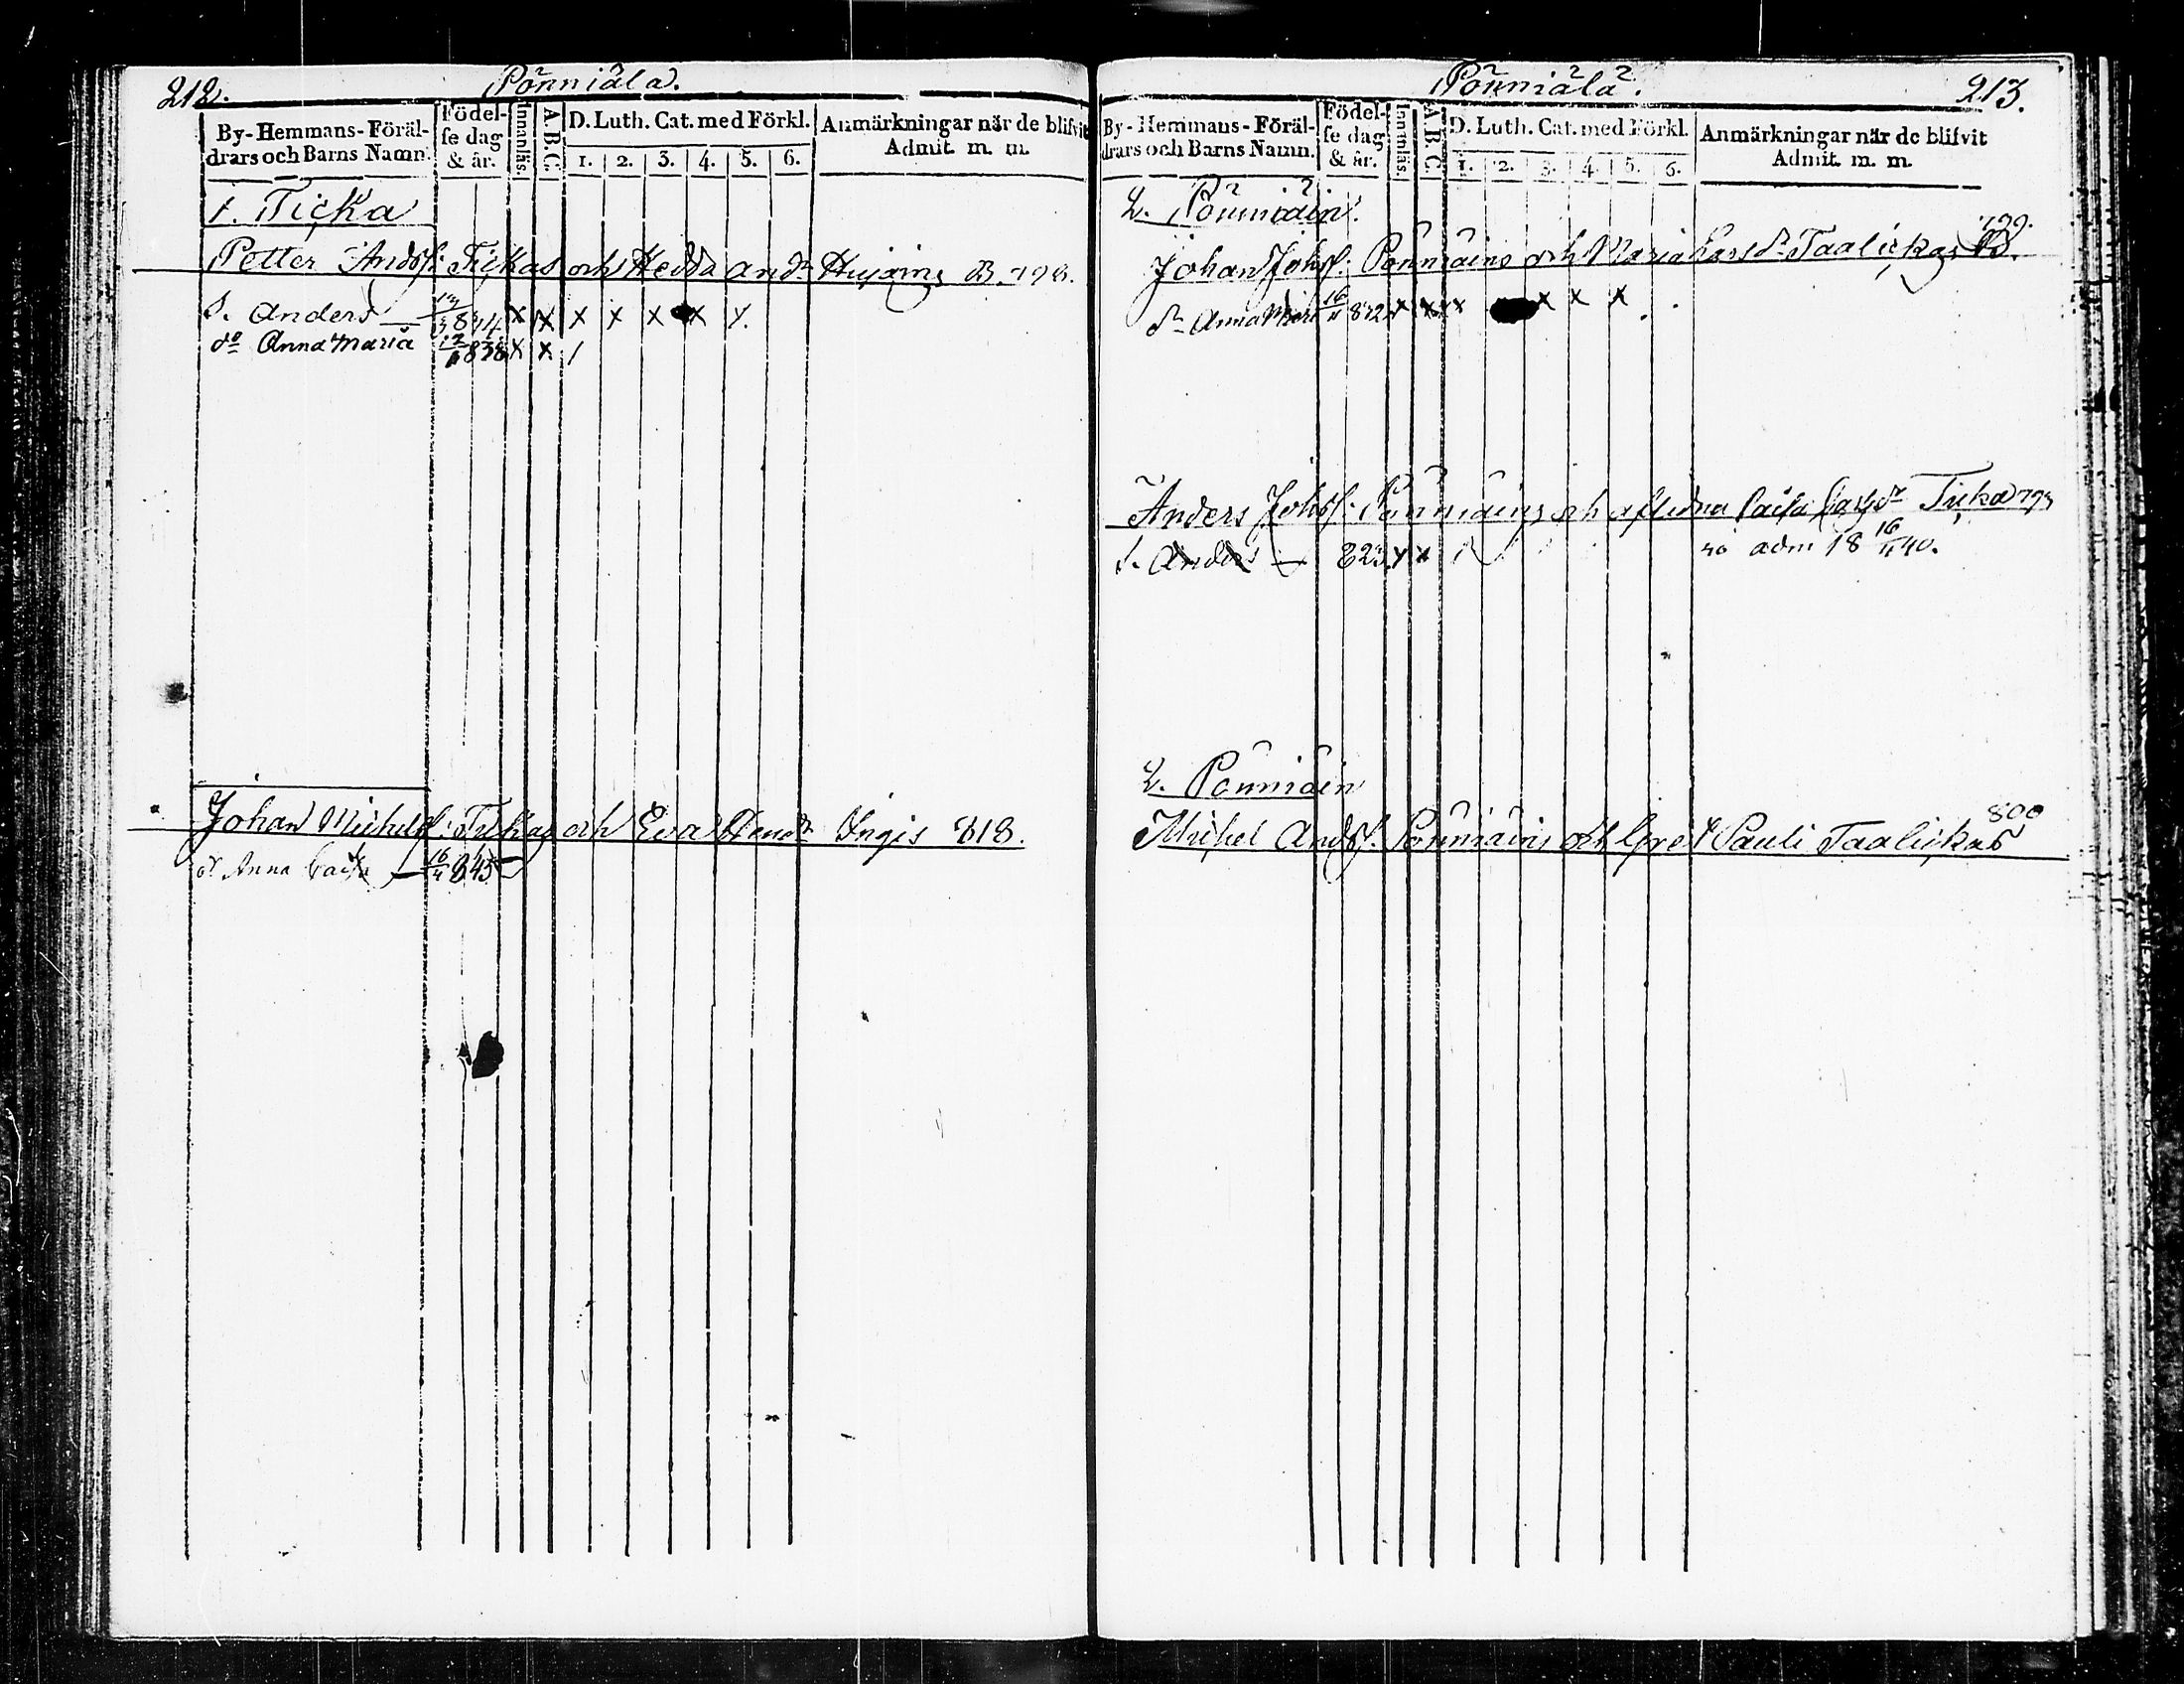 212.
Pönniälä.
By-Hemmans-Föräl-
drars och Barns Namn.
Födel-
se dag
& år.
Innanläs.
A.B.C.
D. Luth. Cat. med Förkl.
1. 2. 3. 4. 5. 6.
Anmärkningar när de blifvit
Admit. m. m.
1. Ticka
Petter Andsf: Tickas och Hedda Andr
S. Anders x x x x x x x
do Anna Maria x x /
Johan Michelsf: Tickas och Eva Ingis 818.
dr Anna 16/4 845
Pönniälä.
213.
By-Hemmans-Föräl-
drars och Barns Namn.
Födel-
se dag
& år.
Innanläs
A.B.C.
D. Luth. Cat. med Förkl.
1. 2. 3. 4. 5. 6.
Anmärkningar när de blifvit
Admit. m. m.
2. Pönniäin
799.
Johan Johsf: Pönniäins och Maria Larsdr Taalickas
dr Anna 16/11 822 x x x x x x
Anders Johsf: Pönniäins och aflidna Larsdr Ticka 793
S. Anders 823 x x adm 18 16/11 40.
2. Pönniäin
800
Michel Andsf. Pönniäins och Gret Pauli Taalickas